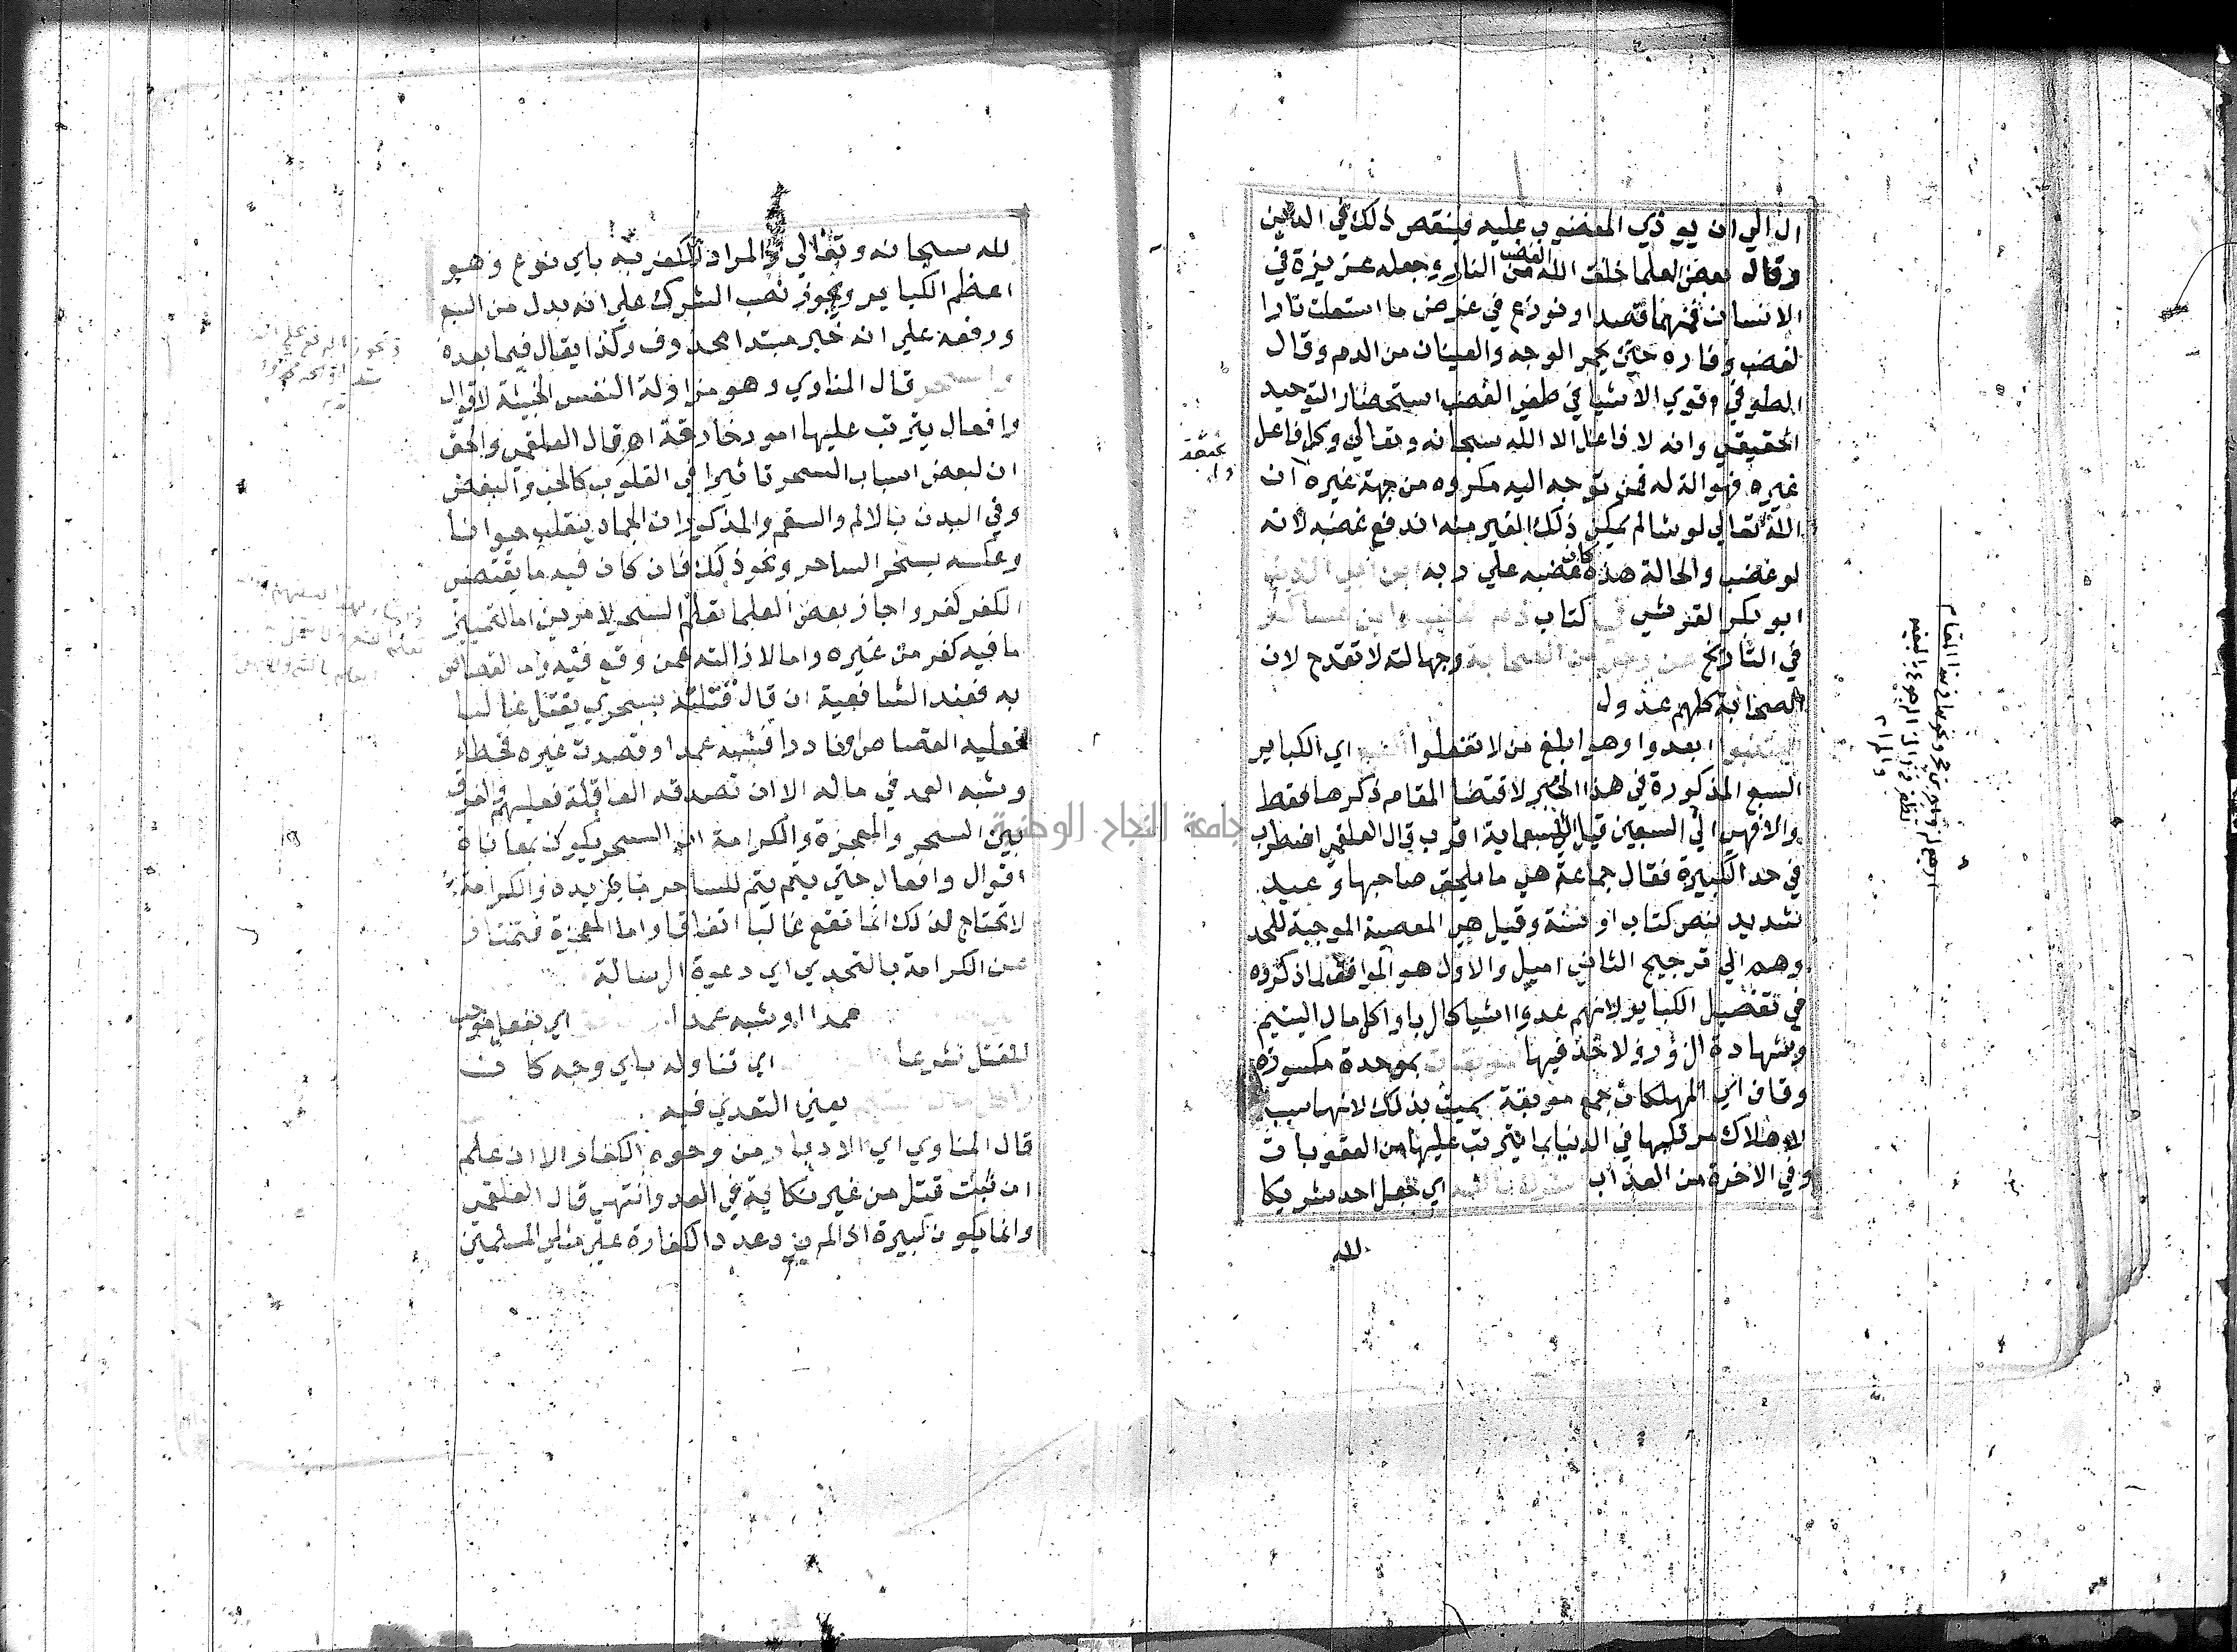 ان الي ان يوذي المغضوب عليه فينقص ذلك في الدين
وقال بعض العلما خلق الله الغضب من النار وجعله غريزة في
الانسان فمهما قصد او نوزع في غرض ما اشتعلت نار ا
لغضب وفاره حتي يحمر الوجه والعينان من الدم وقال
الطوفي واقوي الاشيا في طفي الغضب استحضار التوحيد
الحقيقي وانه لا فاعل الا الله سبحانه وتعالي وكل فاعل
غيره فهو الة له فمن توجه اليه مكروه من جهة غيره ان
الله تعالي لو شا لم يمكن ذلك الغير منه اندفع غضبه لانه
لو غضب والحالة هذه كان غضبه علي ربه ابن ابي الدنيا
ابو بكر القرشي في كتاب ذم الغضب وابن عساكر
في التاريخ عن رجل من الصحابة وجهالته لا تقدح لان
الصحابة كلهم عدول
اجتنبوا ابعدوا وهو ابلغ من لا تفعلوا السبع اي الكباير
السبع المذكورة في هذا الخبر لاقتضا المقام ذكرها فقط
والا فهي الي السبعين قيل الي السبعماية اقرب قال العلقمي اضطرب
في حد الكبيرة فقال جماعة هي ما يلحق صاحبها وعيد
شديد بنص كتاب او سنة وقيل هي المعصية الموجبة للحد
وهم الي ترجيح الثاني اميل والاول هو الموافق لما ذكروه
في تفصيل الكباير لانهم عدوا اشيا كالربا واكل مال اليتيم
وشهادة الزور ولا حد فيها الموبقات بموحدة مكسورة
وقاف اي المهلكات جمع موبقة سميت بذلك لانها سبب
لاهلاك مرتكبها في الدنيا بما يترتب عليها من العقوبات
وفي الاخرة من العذاب الشرك بالله اي جعل احد شريكا
لله
لله سبحانه وتعالي والمراد الكفر به باي نوع وهو
اعظم الكباير ويجوز نصب الشرك علي انه بدل من السبع
ورفعه علي انه خبر مبتدا محذوف وكذا يقال فيما بعده
والسحر قال المناوي وهو مزاولة النفس الخبيثة لاقوال
وافعال يترتب عليها امور خارقة اه قال العلقمي والحق
ان لبعض اسباب السحر تاثيرا في القلوب كالحب والبغض
وفي البدن بالالم والسقم والمذكور ان الجماد ينقلب حيوانا
وعكسه بسحر الساحر ونحو ذلك فان كان فيه ما يقتضي
الكفر كفر واجاز بعض العلما تعلم السحر لامرين اما لتمييز
ما فيه كفر من غيره واما لازالته عمن وقع فيه واما القصاص
به فعند الشافعية ان قال قتلته بسحري يقتل غالبا
فعليه القصاص او نادرا فشبه عمد او قصدت غيره فخطا
وشبه العمد في ماله الا ان تصدقه العاقلة فعليهم والفرق
بين السحر والمعجزة والكرامة ان السحر يكون بمعاناة
اقوال وافعال حتي يتم يتم للساحر ما يريده والكرامة
لا تحتاج لذلك انما تقع غالبا اتفاقا واما المعجزة فتمتاز
عن الكرامة بالتحدي اي دعوة الرسالة
عمدا او شبه عمد اي بفعل موجب
للقتل شرعا اي تناوله باي وجه كان
واكل مال اليتيم يعني التعدي فيه
قال المناوي اي الادبار من وجوه الكفار الا ان علم
ان ثبت قتل من غير نكاية في العدو انتهي قال العلقمي
وانما يكون كبيرة اذا لم يزد عدد الكفارة علي مثلي المسلمين
جامعة النجاح الوطنية